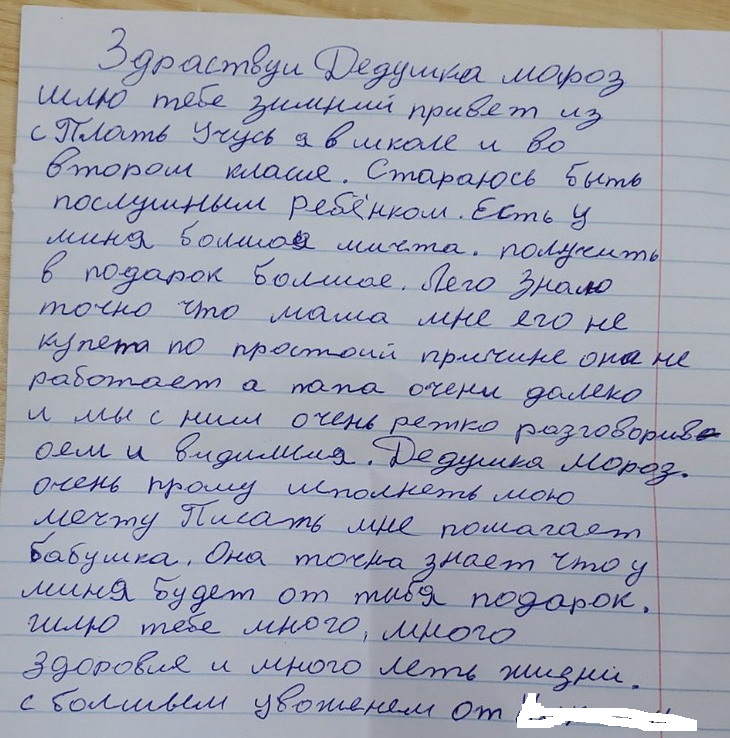 Здраствуи Дедушка мороз
шлю тебе зимний привет из
с Плать Учусь я в школе и во
втором класе. Стараюсь быть
послушным ребёнком. Есть у
миня болшоя мичта. получить
в подарок болшое. Лего Знаю
точно что мама мне его не
купета по простой причине она не
работает а папа очени далеко
и мы с ним очень режко разговорива
оем и видимся. Дедушка Мороз.
очень прошу исполнеть мою
мечту Писать мне помагает
бабушка. Она точна знает что у
миня будет от тибя подарок.
шлю тебе много, много
здоровля и много леть жизни.
с болшыем увоженем от